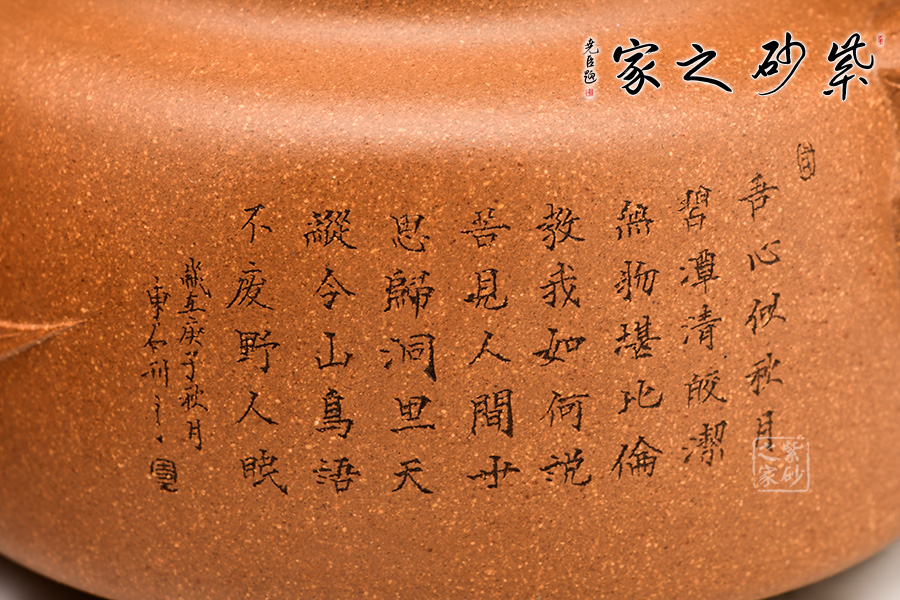 紫砂之家
尧臣题
吾心似秋月
碧潭清皎潔
無物堪比倫
教我如何説
苦見人間世
思歸洞里天
縱令山鳥語
不废野人眠
歲在庚子秋月
石刊之
紫砂之家